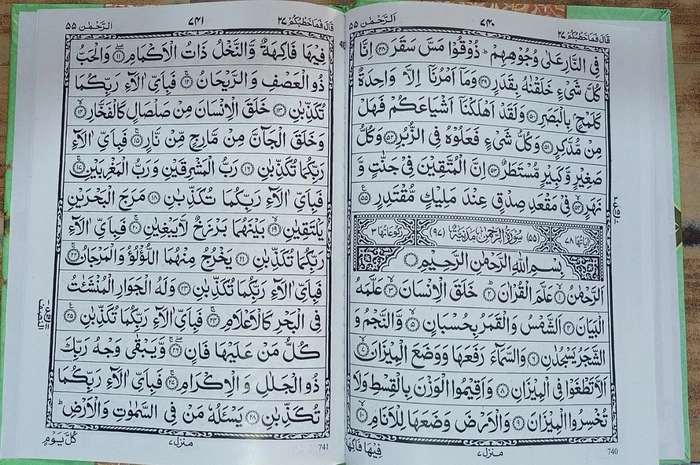 قَالَ فَمَا خَطْبُكُمْ ٢٧
٧٤٠
اَلرَّحْمٰن ٥٥
فِى النَّارِ عَلٰى وُجُوْهِهِمْ ؕ ذُوْقُوْا مَسَّ سَقَرَ ﴿٤٨﴾ اِنَّا
كُلَّ شَىْءٍ خَلَقْنٰهُ بِقَدَرٍ ﴿٤٩﴾ وَمَاۤ اَمْرُنَاۤ اِلَّا وَاحِدَةٌ
كَلَمْحٍۭ بِالْبَصَرِ ﴿٥٠﴾ وَلَقَدْ اَهْلَكْنَاۤ اَشْيَاعَكُمْ فَهَلْ
مِنْ مُّدَّكِرٍ ﴿٥١﴾ وَكُلُّ شَىْءٍ فَعَلُوْهُ فِى الزُّبُرِ ﴿٥٢﴾ وَكُلُّ
صَغِيْرٍ وَّكَبِيْرٍ مُّسْتَطَرٌ ﴿٥٣﴾ اِنَّ الْمُتَّقِيْنَ فِىْ جَنّٰتٍ وَّ
نَهَرٍ ﴿٥٤﴾ فِىْ مَقْعَدِ صِدْقٍ عِنْدَ مَلِيْكٍ مُّقْتَدِرٍ ﴿٥٥﴾
اٰيَاتُهَا ٧٨ (٥٥) سُوْرَةُ الرَّحْمٰنِ مَدَنِيَّةٌ (٩٧) رُكُوْعَاتُهَا ٣
بِسْمِ اللّٰهِ الرَّحْمٰنِ الرَّحِيْمِ
اَلرَّحْمٰنُ ﴿١﴾ عَلَّمَ الْقُرْاٰنَ ﴿٢﴾ خَلَقَ الْاِنْسَانَ ﴿٣﴾ عَلَّمَهُ
الْبَيَانَ ﴿٤﴾ اَلشَّمْسُ وَالْقَمَرُ بِحُسْبَانٍ ﴿٥﴾ وَّالنَّجْمُ وَ
الشَّجَرُ يَسْجُدٰنِ ﴿٦﴾ وَالسَّمَآءَ رَفَعَهَا وَوَضَعَ الْمِيْزَانَ ﴿٧﴾
اَلَّا تَطْغَوْا فِى الْمِيْزَانِ ﴿٨﴾ وَاَقِيْمُوا الْوَزْنَ بِالْقِسْطِ وَلَا
تُخْسِرُوا الْمِيْزَانَ ﴿٩﴾ وَالْاَرْضَ وَضَعَهَا لِلْاَنَامِ ﴿١٠﴾
منزل ٧
740
فِيْهَا فَاكِهَةٌ
قَالَ فَمَا خَطْبُكُمْ ٢٧
٧٤١
اَلرَّحْمٰن ٥٥
فِيْهَا فَاكِهَةٌ وَّالنَّخْلُ ذَاتُ الْاَكْمَامِ ﴿١١﴾ وَالْحَبُّ
ذُو الْعَصْفِ وَالرَّيْحَانُ ﴿١٢﴾ فَبِاَىِّ اٰلَآءِ رَبِّكُمَا
تُكَذِّبٰنِ ﴿١٣﴾ خَلَقَ الْاِنْسَانَ مِنْ صَلْصَالٍ كَالْفَخَّارِ ﴿١٤﴾
وَخَلَقَ الْجَآنَّ مِنْ مَّارِجٍ مِّنْ نَّارٍ ﴿١٥﴾ فَبِاَىِّ اٰلَآءِ
رَبِّكُمَا تُكَذِّبٰنِ ﴿١٦﴾ رَبُّ الْمَشْرِقَيْنِ وَرَبُّ الْمَغْرِبَيْنِ ﴿١٧﴾
فَبِاَىِّ اٰلَآءِ رَبِّكُمَا تُكَذِّبٰنِ ﴿١٨﴾ مَرَجَ الْبَحْرَيْنِ
يَلْتَقِيٰنِ ﴿١٩﴾ بَيْنَهُمَا بَرْزَخٌ لَّا يَبْغِيٰنِ ﴿٢٠﴾ فَبِاَىِّ اٰلَآءِ
رَبِّكُمَا تُكَذِّبٰنِ ﴿٢١﴾ يَخْرُجُ مِنْهُمَا اللُّؤْلُؤُ وَالْمَرْجَانُ ﴿٢٢﴾
فَبِاَىِّ اٰلَآءِ رَبِّكُمَا تُكَذِّبٰنِ ﴿٢٣﴾ وَلَهُ الْجَوَارِ الْمُنْشَئٰتُ
فِى الْبَحْرِ كَالْاَعْلَامِ ﴿٢٤﴾ فَبِاَىِّ اٰلَآءِ رَبِّكُمَا تُكَذِّبٰنِ ﴿٢٥﴾
كُلُّ مَنْ عَلَيْهَا فَانٍ ﴿٢٦﴾ وَّيَبْقٰى وَجْهُ رَبِّكَ
ذُو الْجَلٰلِ وَالْاِكْرَامِ ﴿٢٧﴾ فَبِاَىِّ اٰلَآءِ رَبِّكُمَا
تُكَذِّبٰنِ ﴿٢٨﴾ يَسْئَلُهٗ مَنْ فِى السَّمٰوٰتِ وَالْاَرْضِ ؕ
منزل ٧
741
كُلَّ يَوْمٍ